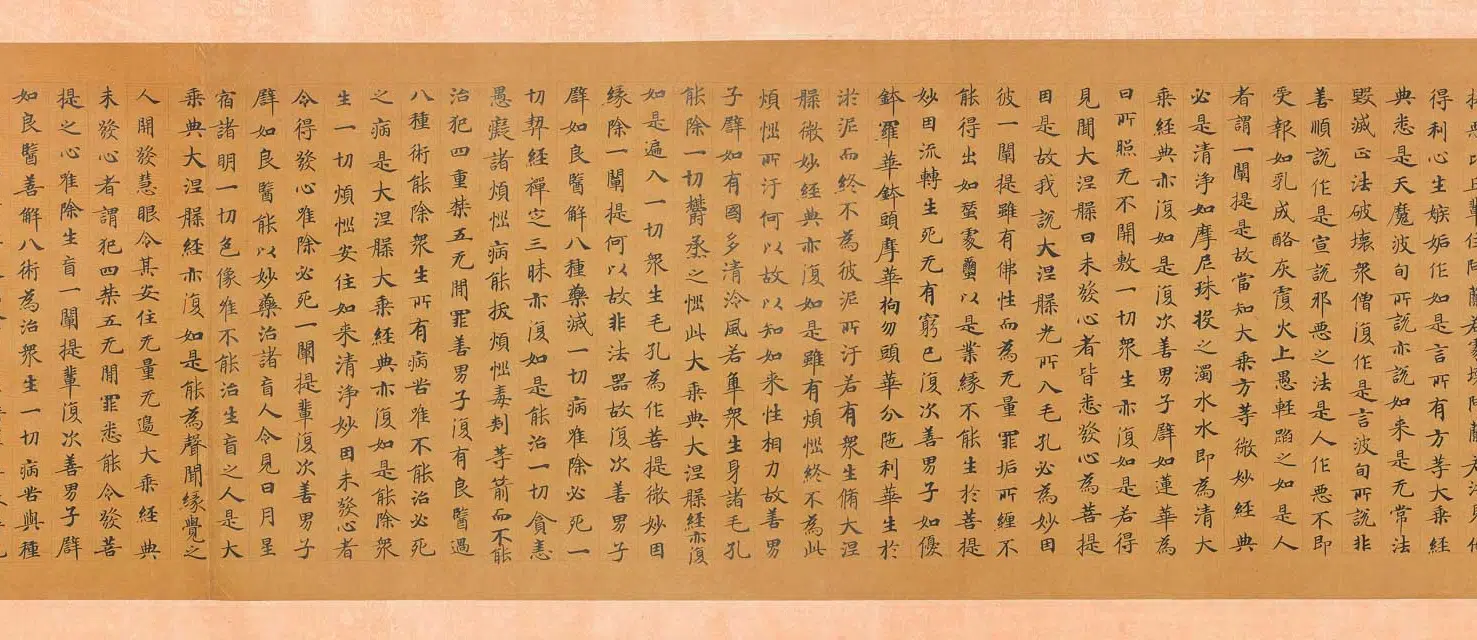 得利心生嫉妬作如是言所有方等大乘經
典悉是天魔波旬所說亦說如來是无常法
毀滅正法破壞衆僧復作是言波旬所說非
善順說作是宣說邪惡之法是人作惡不即
受報如乳成酪灰覆火上愚輕蹈之如是人
者謂一闡提是故當知大乘方等微妙經典
必是清淨如摩尼珠投之濁水水即為清大
乘經典亦復如是復次善男子譬如蓮華為
日所照无不開敷一切衆生亦復如是若得
見聞大涅槃日未發心者皆悉發心為菩提
因是故我說大涅槃光所入毛孔必為妙因
彼一闡提雖有佛性而為无量罪垢所纏不
能得出如蠶處繭以是業緣不能生於菩提
妙因流轉生死无有窮已復次善男子如優
鉢羅華鉢頭摩華拘勿頭華分陁利華生於
淤泥而終不為彼泥所汙若有衆生脩大涅
槃微妙經典亦復如是雖有煩惱終不為此
煩惱所汙何以故以知如來性相力故善男
子譬如有國多清泠風若觸衆生身諸毛孔
能除一切欝蒸之惱此大乘典大涅槃經亦復
如是遍入一切衆生毛孔為作菩提微妙因
緣除一闡提何以故非法器故復次善男子
譬如良醫解八種藥滅一切病唯除必死一
切契經禪定三昧亦復如是能治一切貪恚
愚癡諸煩惱病能拔煩惱毒刺等箭而不能
治犯四重禁五无間罪善男子復有良醫過
八種術能除衆生所有病苦唯不能治必死
之病是大涅槃大乘經典亦復如是能除衆
生一切煩惱安住如來清淨妙因未發心者
令得發心唯除必死一闡提輩復次善男子
譬如良醫能以妙藥治諸盲人令見日月星
宿諸明一切色像唯不能治生盲之人是大
乘典大涅槃經亦復如是能為聲聞緣覺之
人開發慧眼令其安住无量无邊大乘經典
未發心者謂犯四禁五无間罪悉能令發菩
提之心唯除生盲一闡提輩復次善男子譬
如良醫善解八術為治衆生一切病苦與種